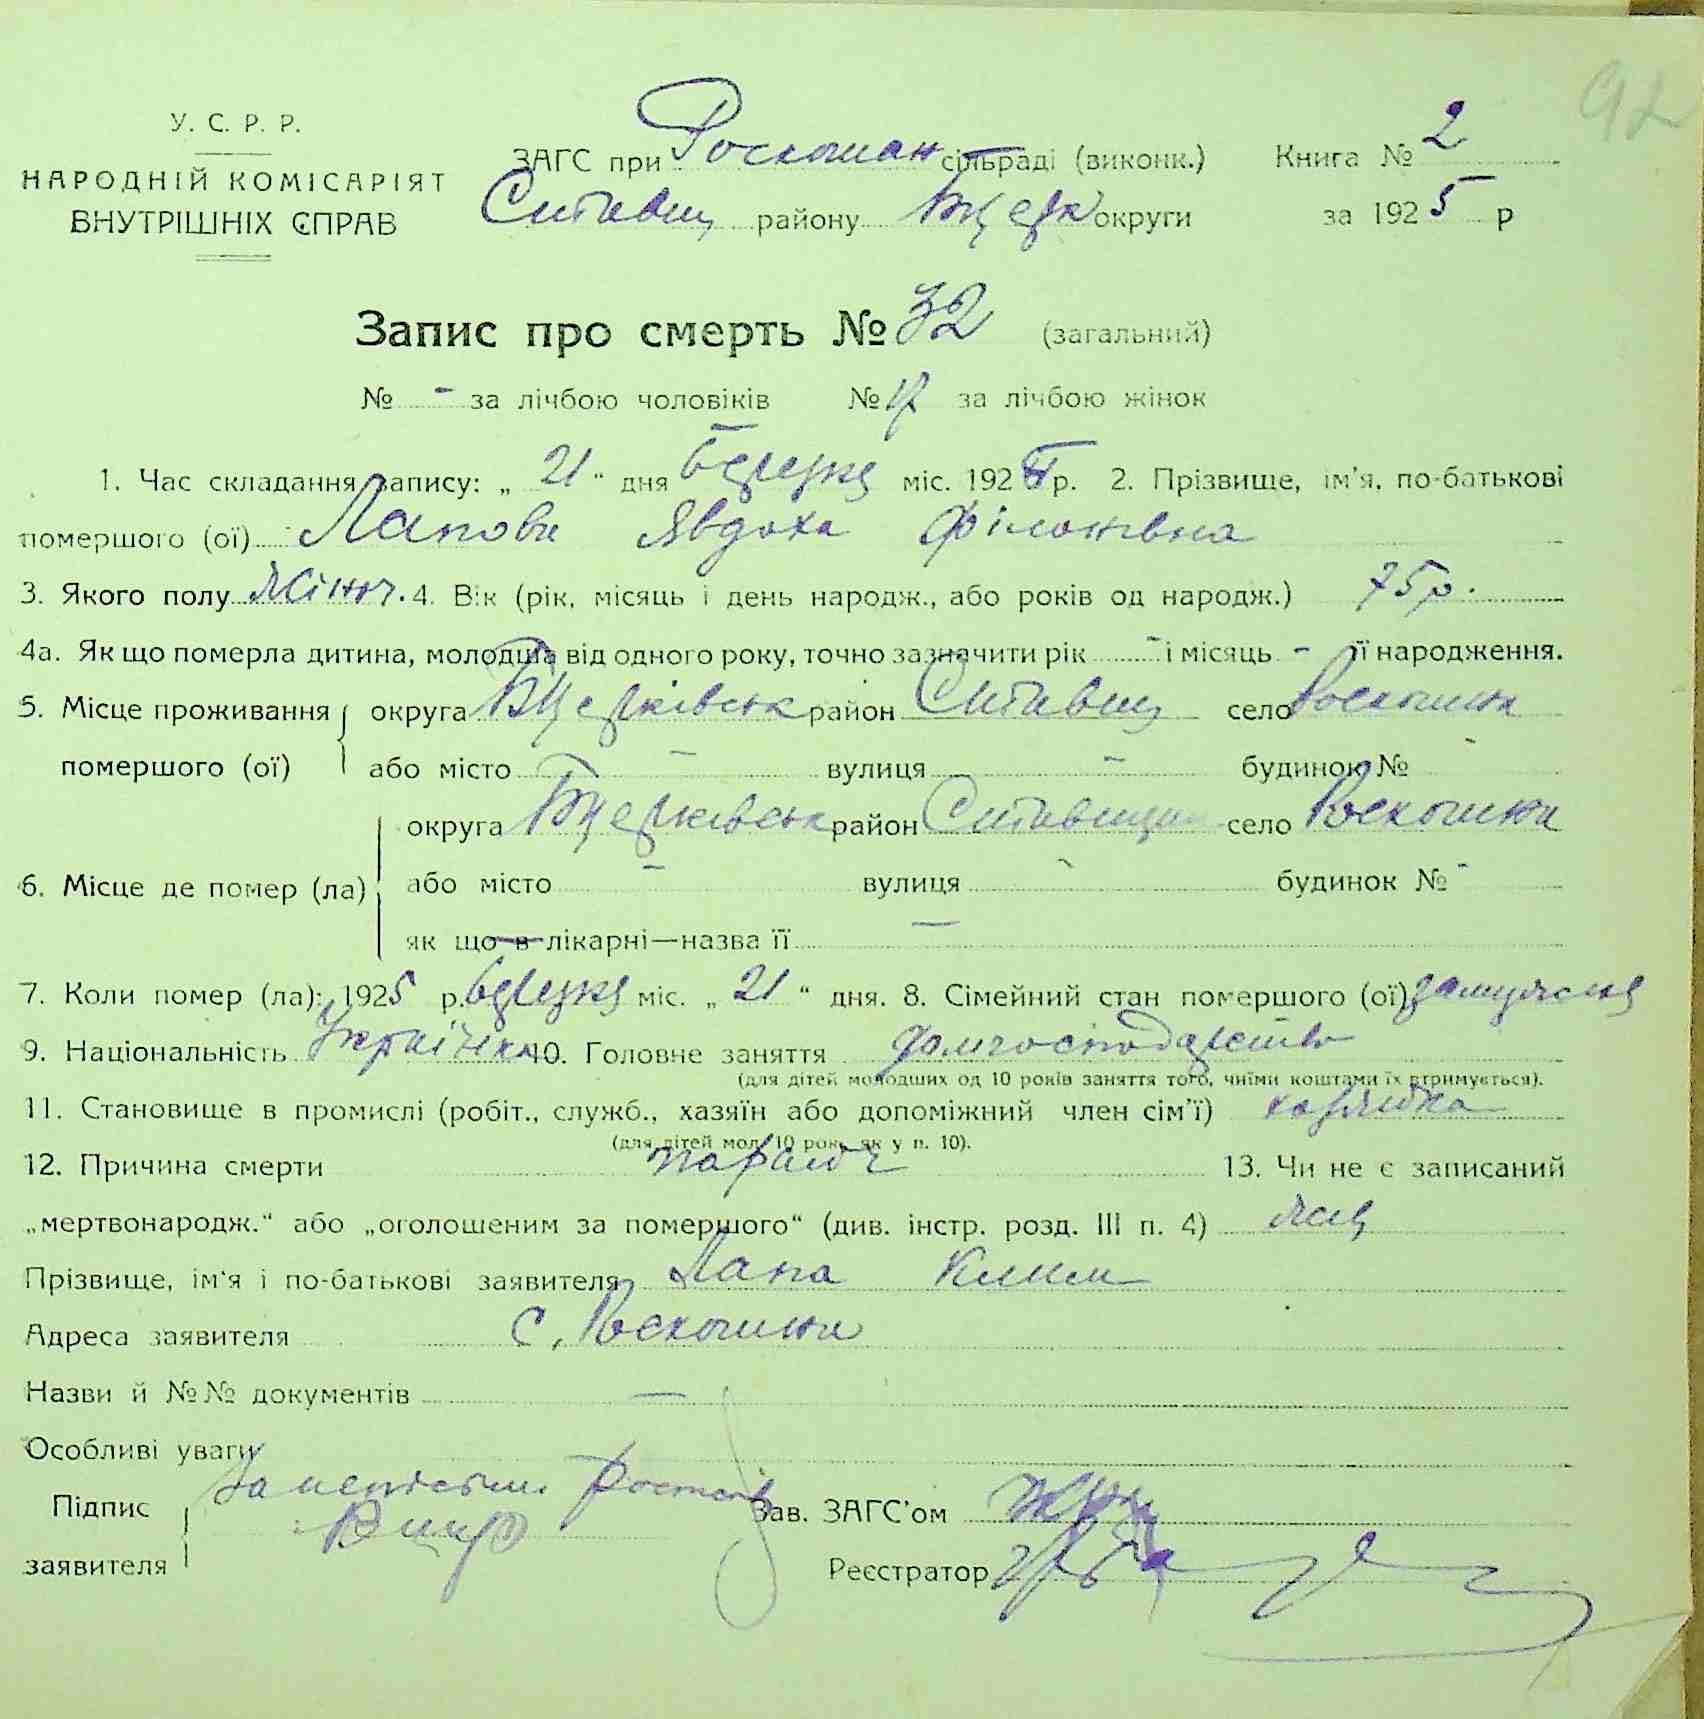 92
У. С. Р. Р.
НАРОДНІЙ КОМІСАРІЯТ
ВНУТРІШНІХ СПРАВ
ЗАГС при Роскошан сільраді (виконк.) Книга № 2
Ставищ району Бцерк округи за 1925 р
Запис про смерть № 32 (загальний)
№ - за лічбою чоловіків № 17 за лічбою жінок
1. Час складання запису: „ 21 " дня березня міс. 192 р. 2. Прізвище, ім'я, по-батькові
помершого (ої) Лапова Явдоха Філонівна
3. Якого полу Жіноч. 4. Вік (рік, місяць і день народж., або років од народж.) 75 р.
4а. Як що померла дитина, молодша від одного року, точно зазначити рік - і місяць - її народження.
5. Місце проживання округа Бцерківськ район Ставищ село Роскошна
помершого (ої) або місто - вулиця - будинок № -
округа Бцерківськ район село Роскошна
6. Місце де помер (ла) або місто - вулиця - будинок № -
як що в лікарні—назва її —
7. Коли помер (ла): 1925 р. березня міс. „ 21 " дня. 8. Сімейний стан помершого (ої) замужня
9. Національність Українка 10. Головне заняття домгосподарство
(для дітей молодших од 10 років заняття того, чиїми коштами їх втримується).
11. Становище в промислі (робіт., служб., хазяїн або допоміжний член сім'ї) хазяйка
(для дітей мол. 10 рок. як у п. 10).
12. Причина смерти параліч 13. Чи не є записаний
„мертвонародж." або „оголошеним за помершого" (див. інстр. розд. III п. 4)
Прізвище, ім'я і по-батькові заявителя Лапа Клим
Адреса заявителя С. Роскошна
Назви й №№ документів —
Особливі уваги
Підпис Зав. ЗАГС'ом
заявителя Реєстратор